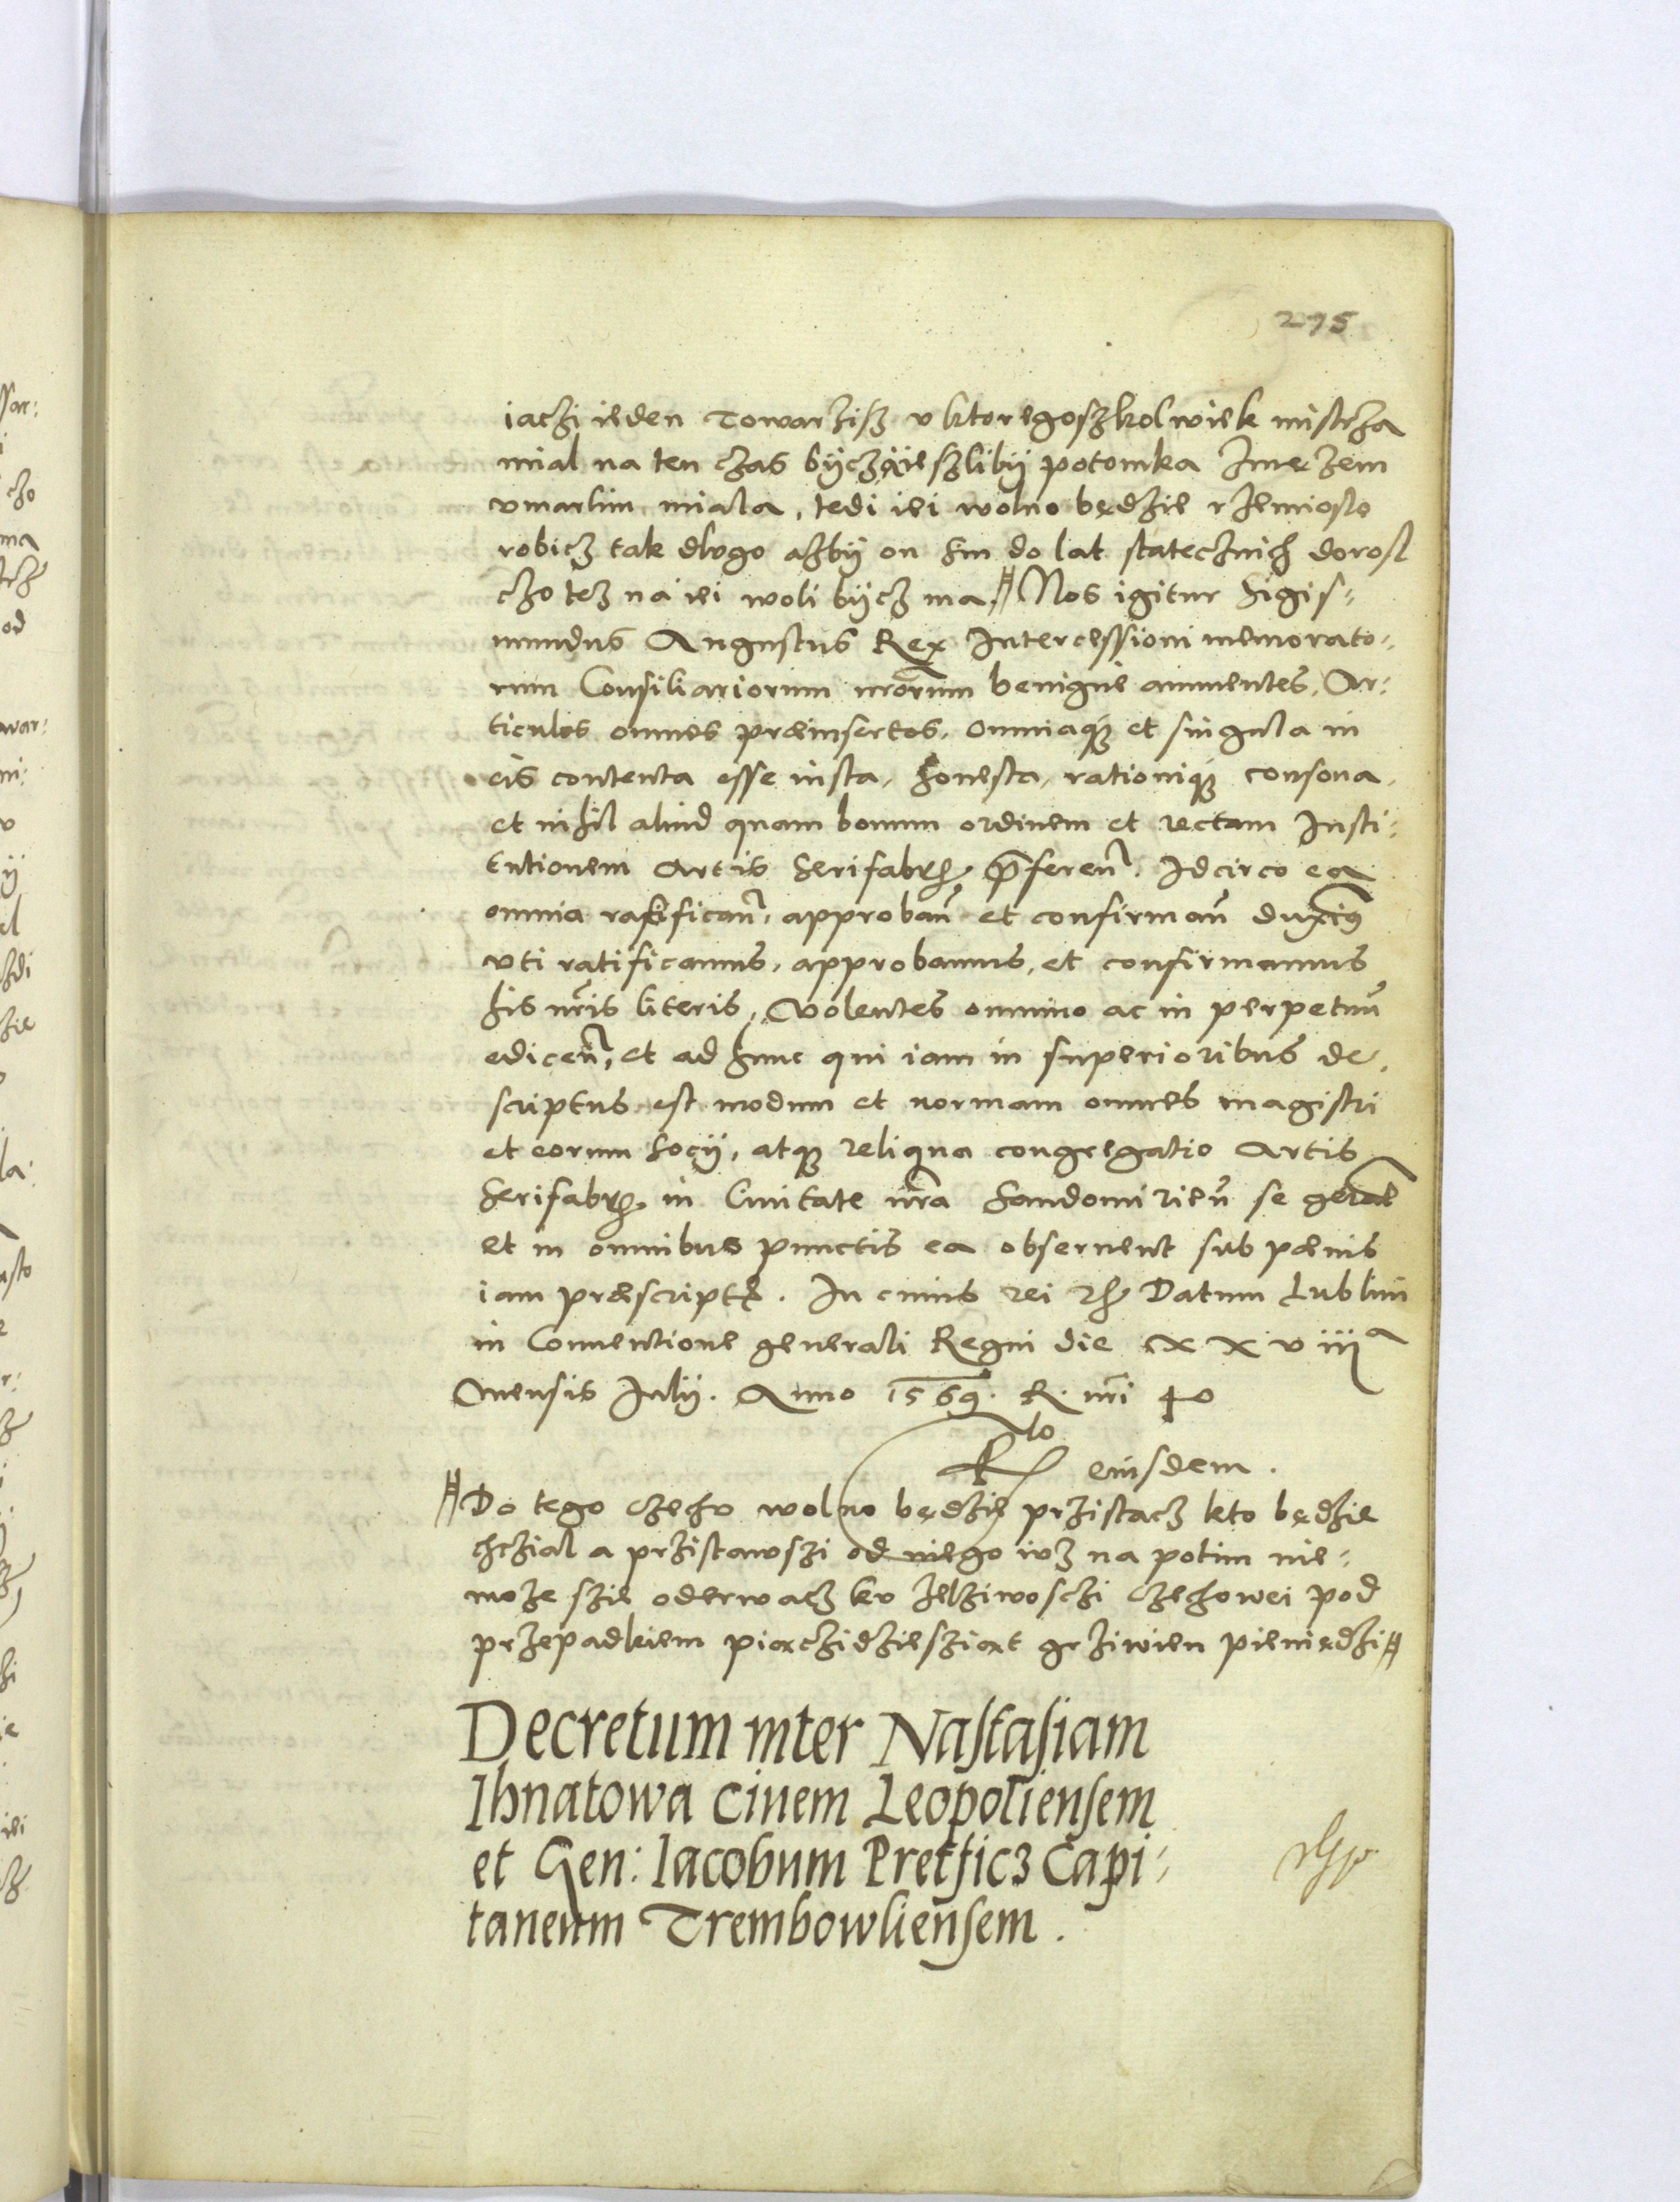 275
iaczi ieden Towarzisz v ktoregoszkolwiek mistrza
mial na ten czas bÿcz a ieszlibÿ potomka zmęzem
vmarlim miala, tedi iei wolno będzie rzemioslo
robicz tak dlvgo azbÿ on sin do lat statecznich dorosl
czo tez na iei woli bÿcz ma. Nos igitur Sigis-
mundus Augustus Rex Intercessioni memorato-
rum Consiliariorum nrorum benigne annuentes, Ar-
ticulos omnes præinsertos, omniaq et singula in
eis contenta esse iusta, honesta, rationiq consona,
et nihil aliud quam bonum ordinem et rectam Insti-
tutionem Artis Serifabr præferen. Idcirco ea
omnia ratifican, approban et confirman duximus
vti ratificamus, approbamus, et confirmamus
his nris literis, Volentes omnino ac in perpetuu
edicen, et ad hunc qui iam in superioribus de-
scriptus est modum et normam omnes magistri
et eorum Socÿ, atq reliqua congregatio Artis
Serifabr in Ciuitate nra Sandomirien se gerat
et in omnibus punctis ea obseruent sub pænis
iam præscriptis. In cuius rei Datum Lublini
in Conuentione generali Regni die xxviiia
Mensis Iulÿ. Anno 1569. R. nri 40
Rlo eiusdem.
Do tego czechv wolno będzie przistacz kto będzie
chczial a przistawszi od niego ivz na potim nie-
moze szie oderwacz kv zelziwosczi czechowei pod
przepadkiem piączidziesziąt grziwien pieniędzi
Decretum inter Nastasiam
Ihnatowa ciuem Leopoliensem
et Gen: Iacobum Pretficz Capi-
taneum Trembowliensem.